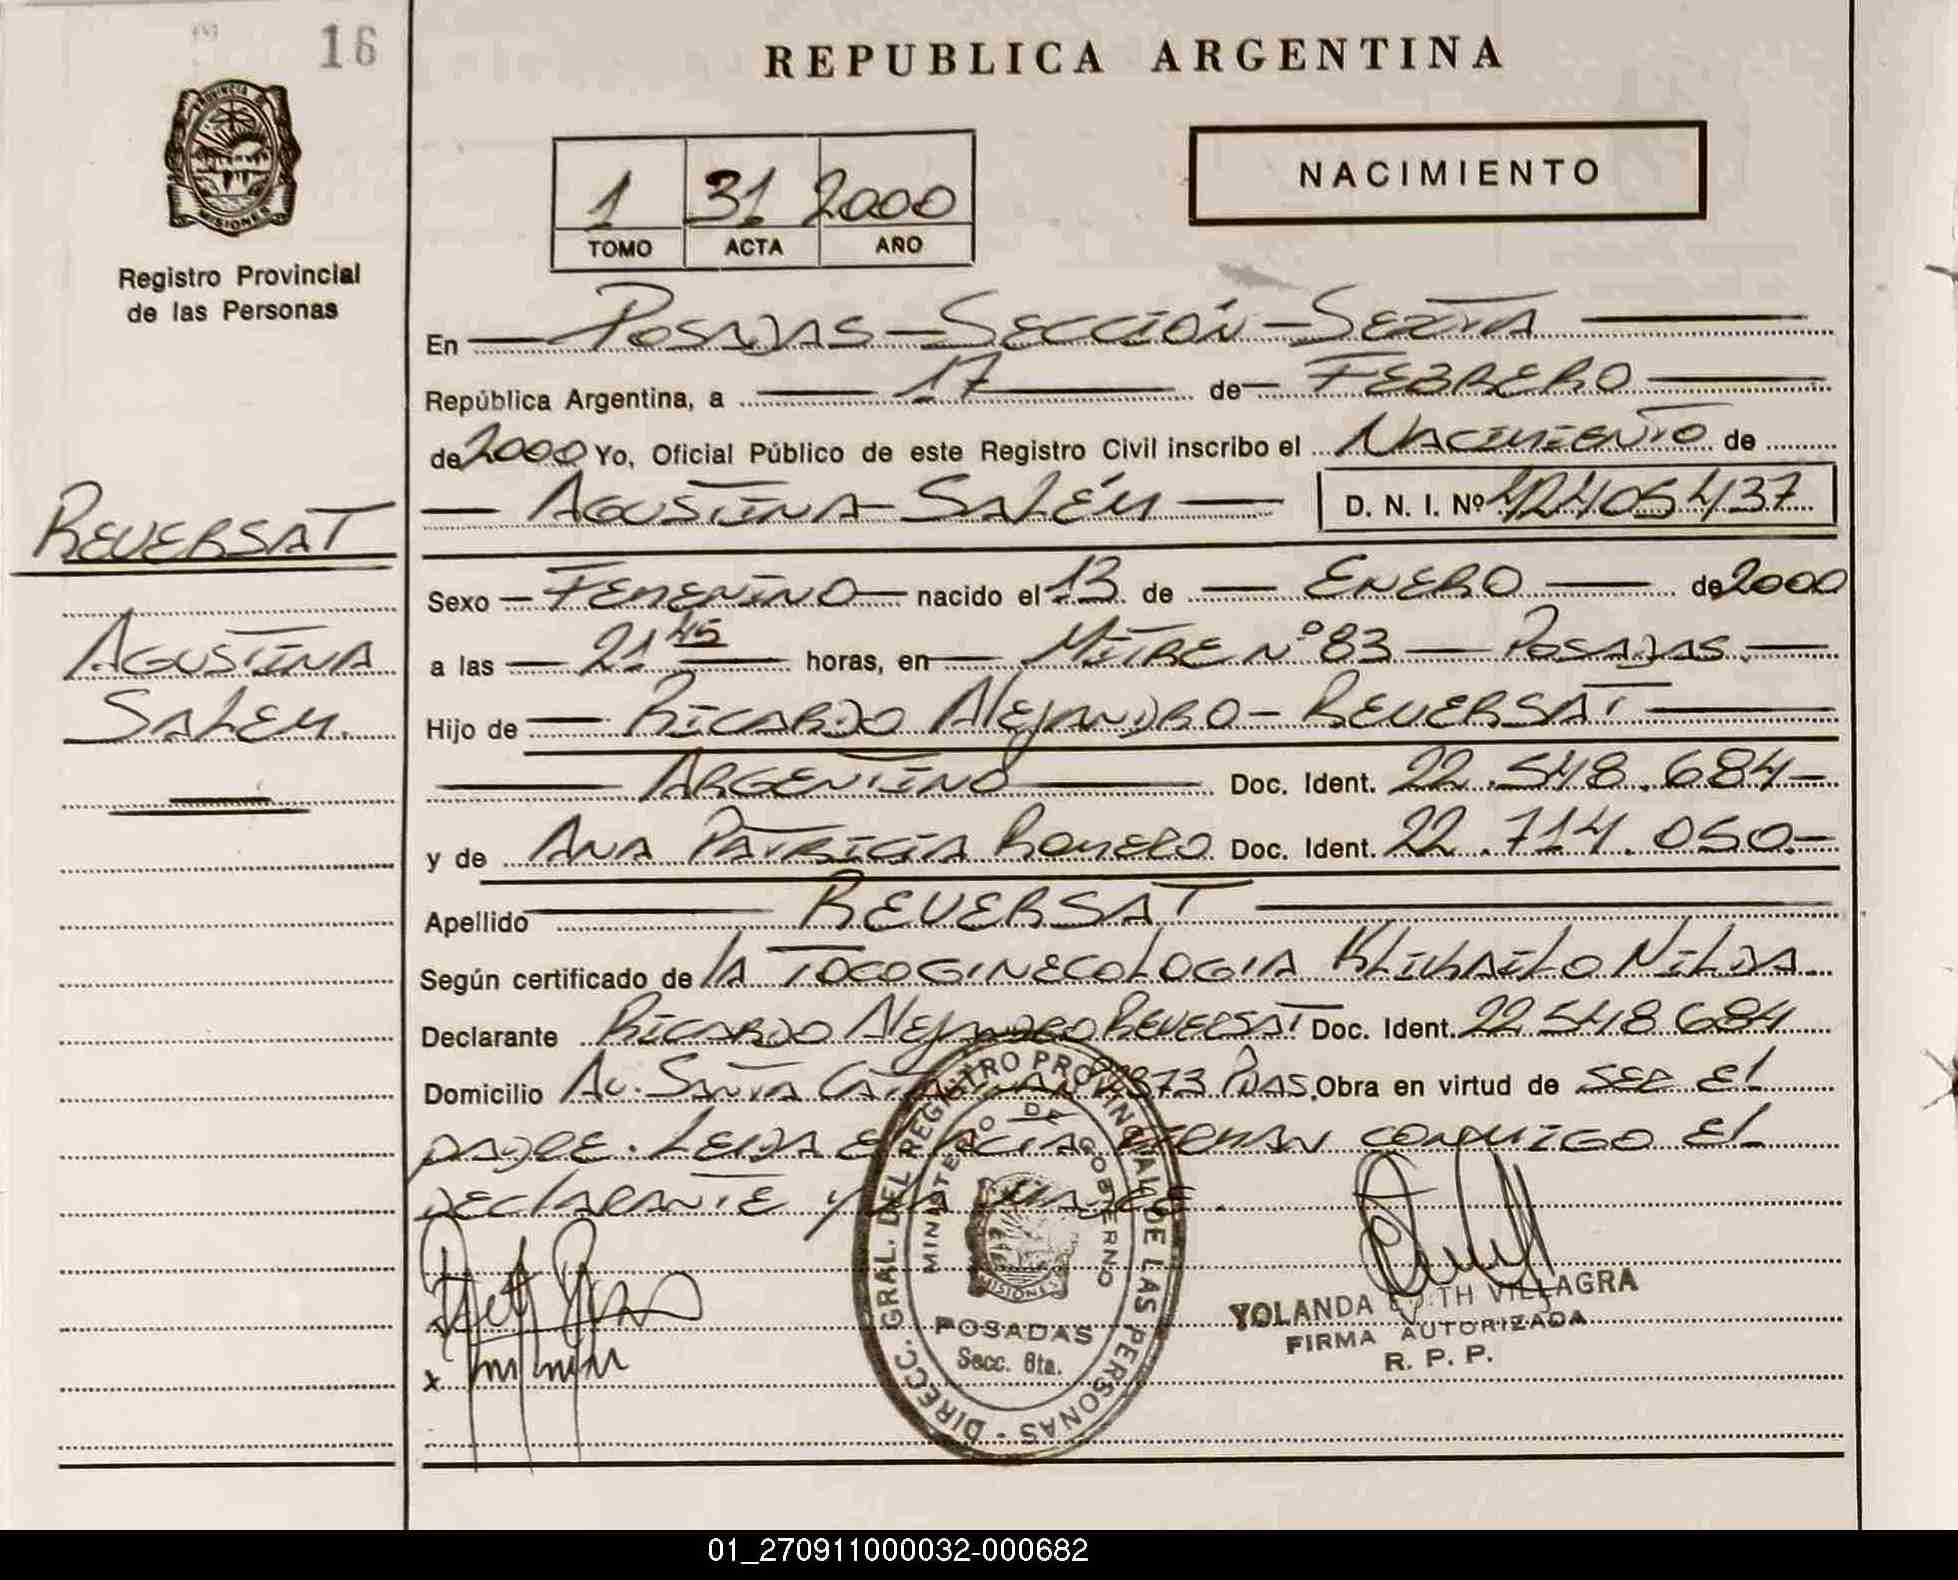 16
REPUBLICA ARGENTINA
PROVINCIA DE
MISIONES
Registro Provincial
de las Personas
NACIMIENTO
1 31 2000
TOMO ACTA AÑO
En POSADAS - SECCIÓN - SEXTA
República Argentina, a 17 de FEBRERO
de 2000 Yo, Oficial Público de este Registro Civil inscribo el NACIMIENTO de
AGUSTINA SALÉM D. N. I. Nº 42405437
REVERSAT
AGUSTINA
SALEM.
Sexo - FEMENINO - nacido el 13 de ENERO de 2000
a las 21 45 horas, en MITRE Nº 83 - POSADAS.
Hijo de RICARDO AlEJANDRO - REVERSAT
ARGENTINO Doc. Ident. 22.548.684-
y de ANA PATRICIA ROMERO Doc. Ident. 22.714.050.-
Apellido REVERSAT
Según certificado de lA TOCOGINECOLOGIA NILDA
Declarante RICARDO AlEJANDRO REVERSAT Doc. Ident. 22 548 684
Domicilio AV. SANTA 873 PDAS. Obra en virtud de SER El
PADRE. LEIDA El ACTA FIRMAN CONMIGO El
DECLARANTE Y LA MADRE.
DIRECC. GRAL. DEL REGISTRO PROVINCIAL DE LAS PERSONAS
MINISTERIO DE GOBIERNO
MISIONES
POSADAS
Secc. 6ta.
YOLANDA EDITH VILLAGRA
FIRMA AUTORIZADA
R. P. P.
x
01_270911000032-000682